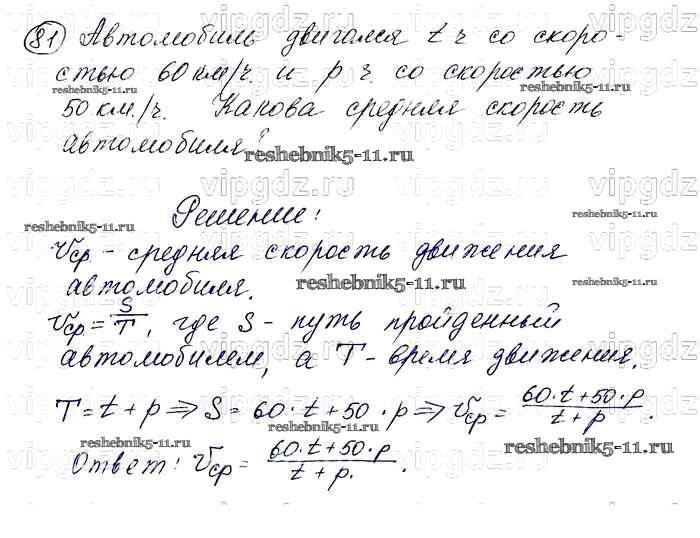 81 Автомобиль двигался t ч со скоро-
стью 60 км/ч и p ч. со скоростью
50 км./ч. Какова средняя скорость
автомобиля?
reshebnik5-11.ru
Решение:
Vср - средняя скорость движения
автомобиля.
Vср = S/T, где S - путь пройденный
автомобилем, а T - время движения.
T = t + p ⇒ S = 60·t + 50·p ⇒ Vср = (60·t + 50·p)/(t + p).
Ответ: Vср = (60·t + 50·p)/(t + p.).